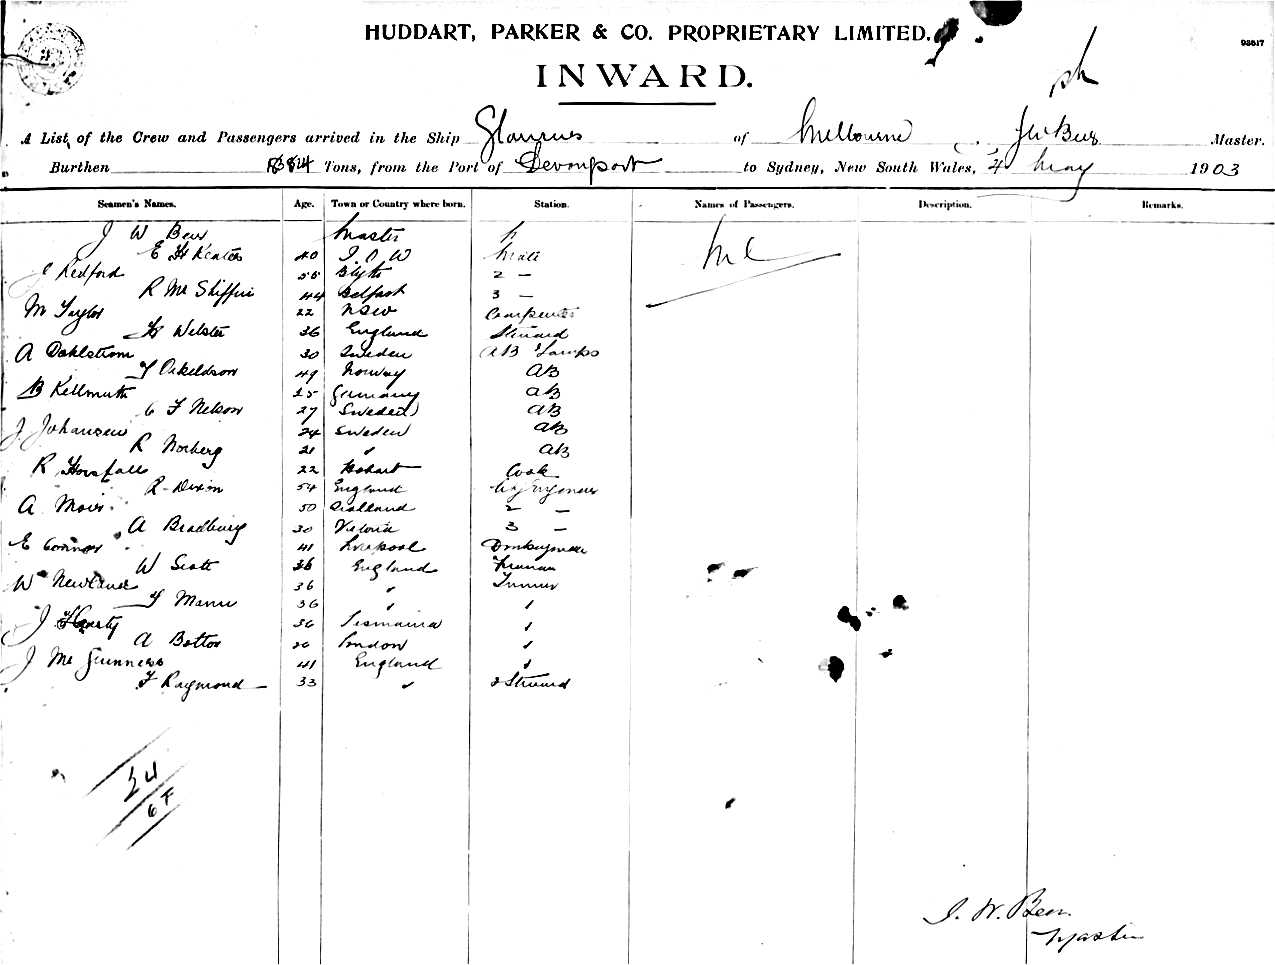 HUDDART, PARKER & CO. PROPRIETARY LIMITED.
93617
INWARD.
A List of the Crew and Passengers arrived in the Ship Glaucus of Melbourne J W Beer Master.
Burthen Tons, from the Port of Devonport to Sydney, New South Wales, 4 May 1903
Seamen's Names. Age. Town or Country where born. Station. Names of Passengers. Description. Remarks.
J W Beer Master
E H 40 I.O.W Mate
J Redford 55 Blyth 2 —
R Mc 44 Belfast 3 —
M Taylor 22 NSW Carpenter
H Webster 36 England Steward
A Dahlstrom 30 Sweden AB & Lamps
T Oskeldson 49 Norway AB
B Kellmuth 25 Germany AB
C F Nelson 27 Sweden AB
J Johansen 24 Sweden AB
R Norberg 21 " AB
R Horsfall 22 Hobart Cook
R Dixon 54 England
A Moir 50 Scotland 2 —
A Bradbury 30 Victoria 3 —
E Connor 41 Liverpool Donkeyman
W Scott 36 England Fireman
W Newland 36 " Trimmer
F Mann 36 " "
J 36 Tasmania "
A Bottor 26 London "
J Mc Guinness 41 England "
F Raymond — 33 " 2 Steward
24
J. W. Beer.
Master